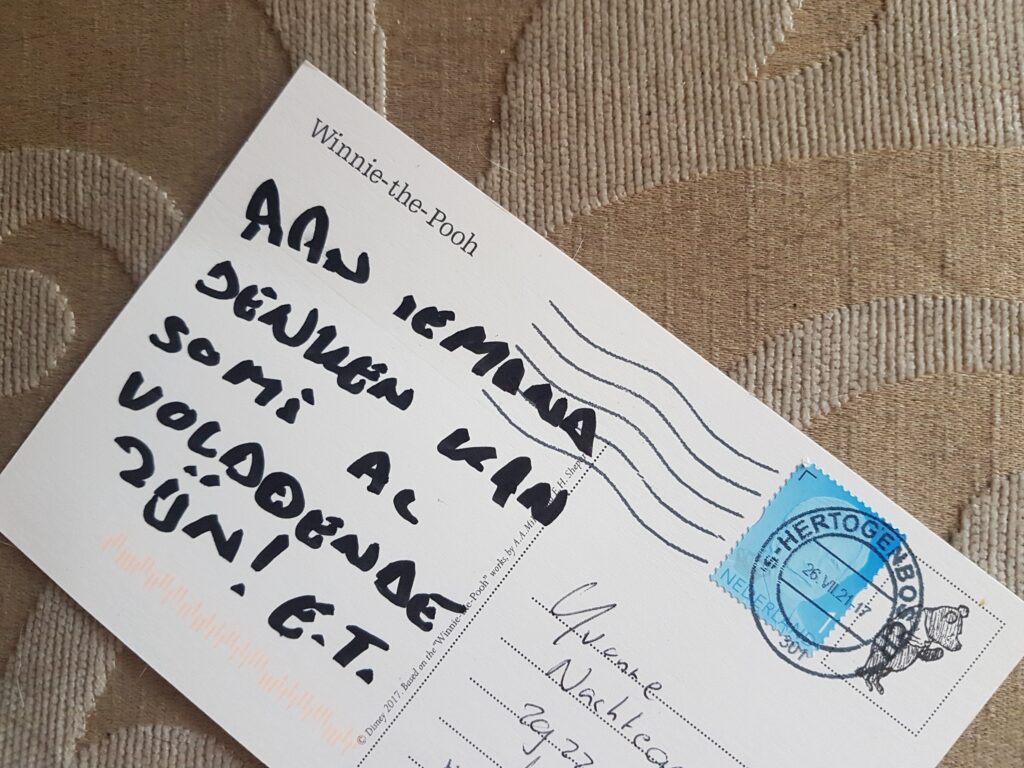 Winnie-the-Pooh
AAN IEMAND
DENKEN KAN
SOMS AL
VOLDOENDE
ZIJN! E.T.
© Disney 2017. Based on the "Winnie-the-Pooh" works, by A.A. E.H. Shepard
'S-HERTOGENBOSCH
26.VII.21.17
301
NEDERLAND
Yvonne